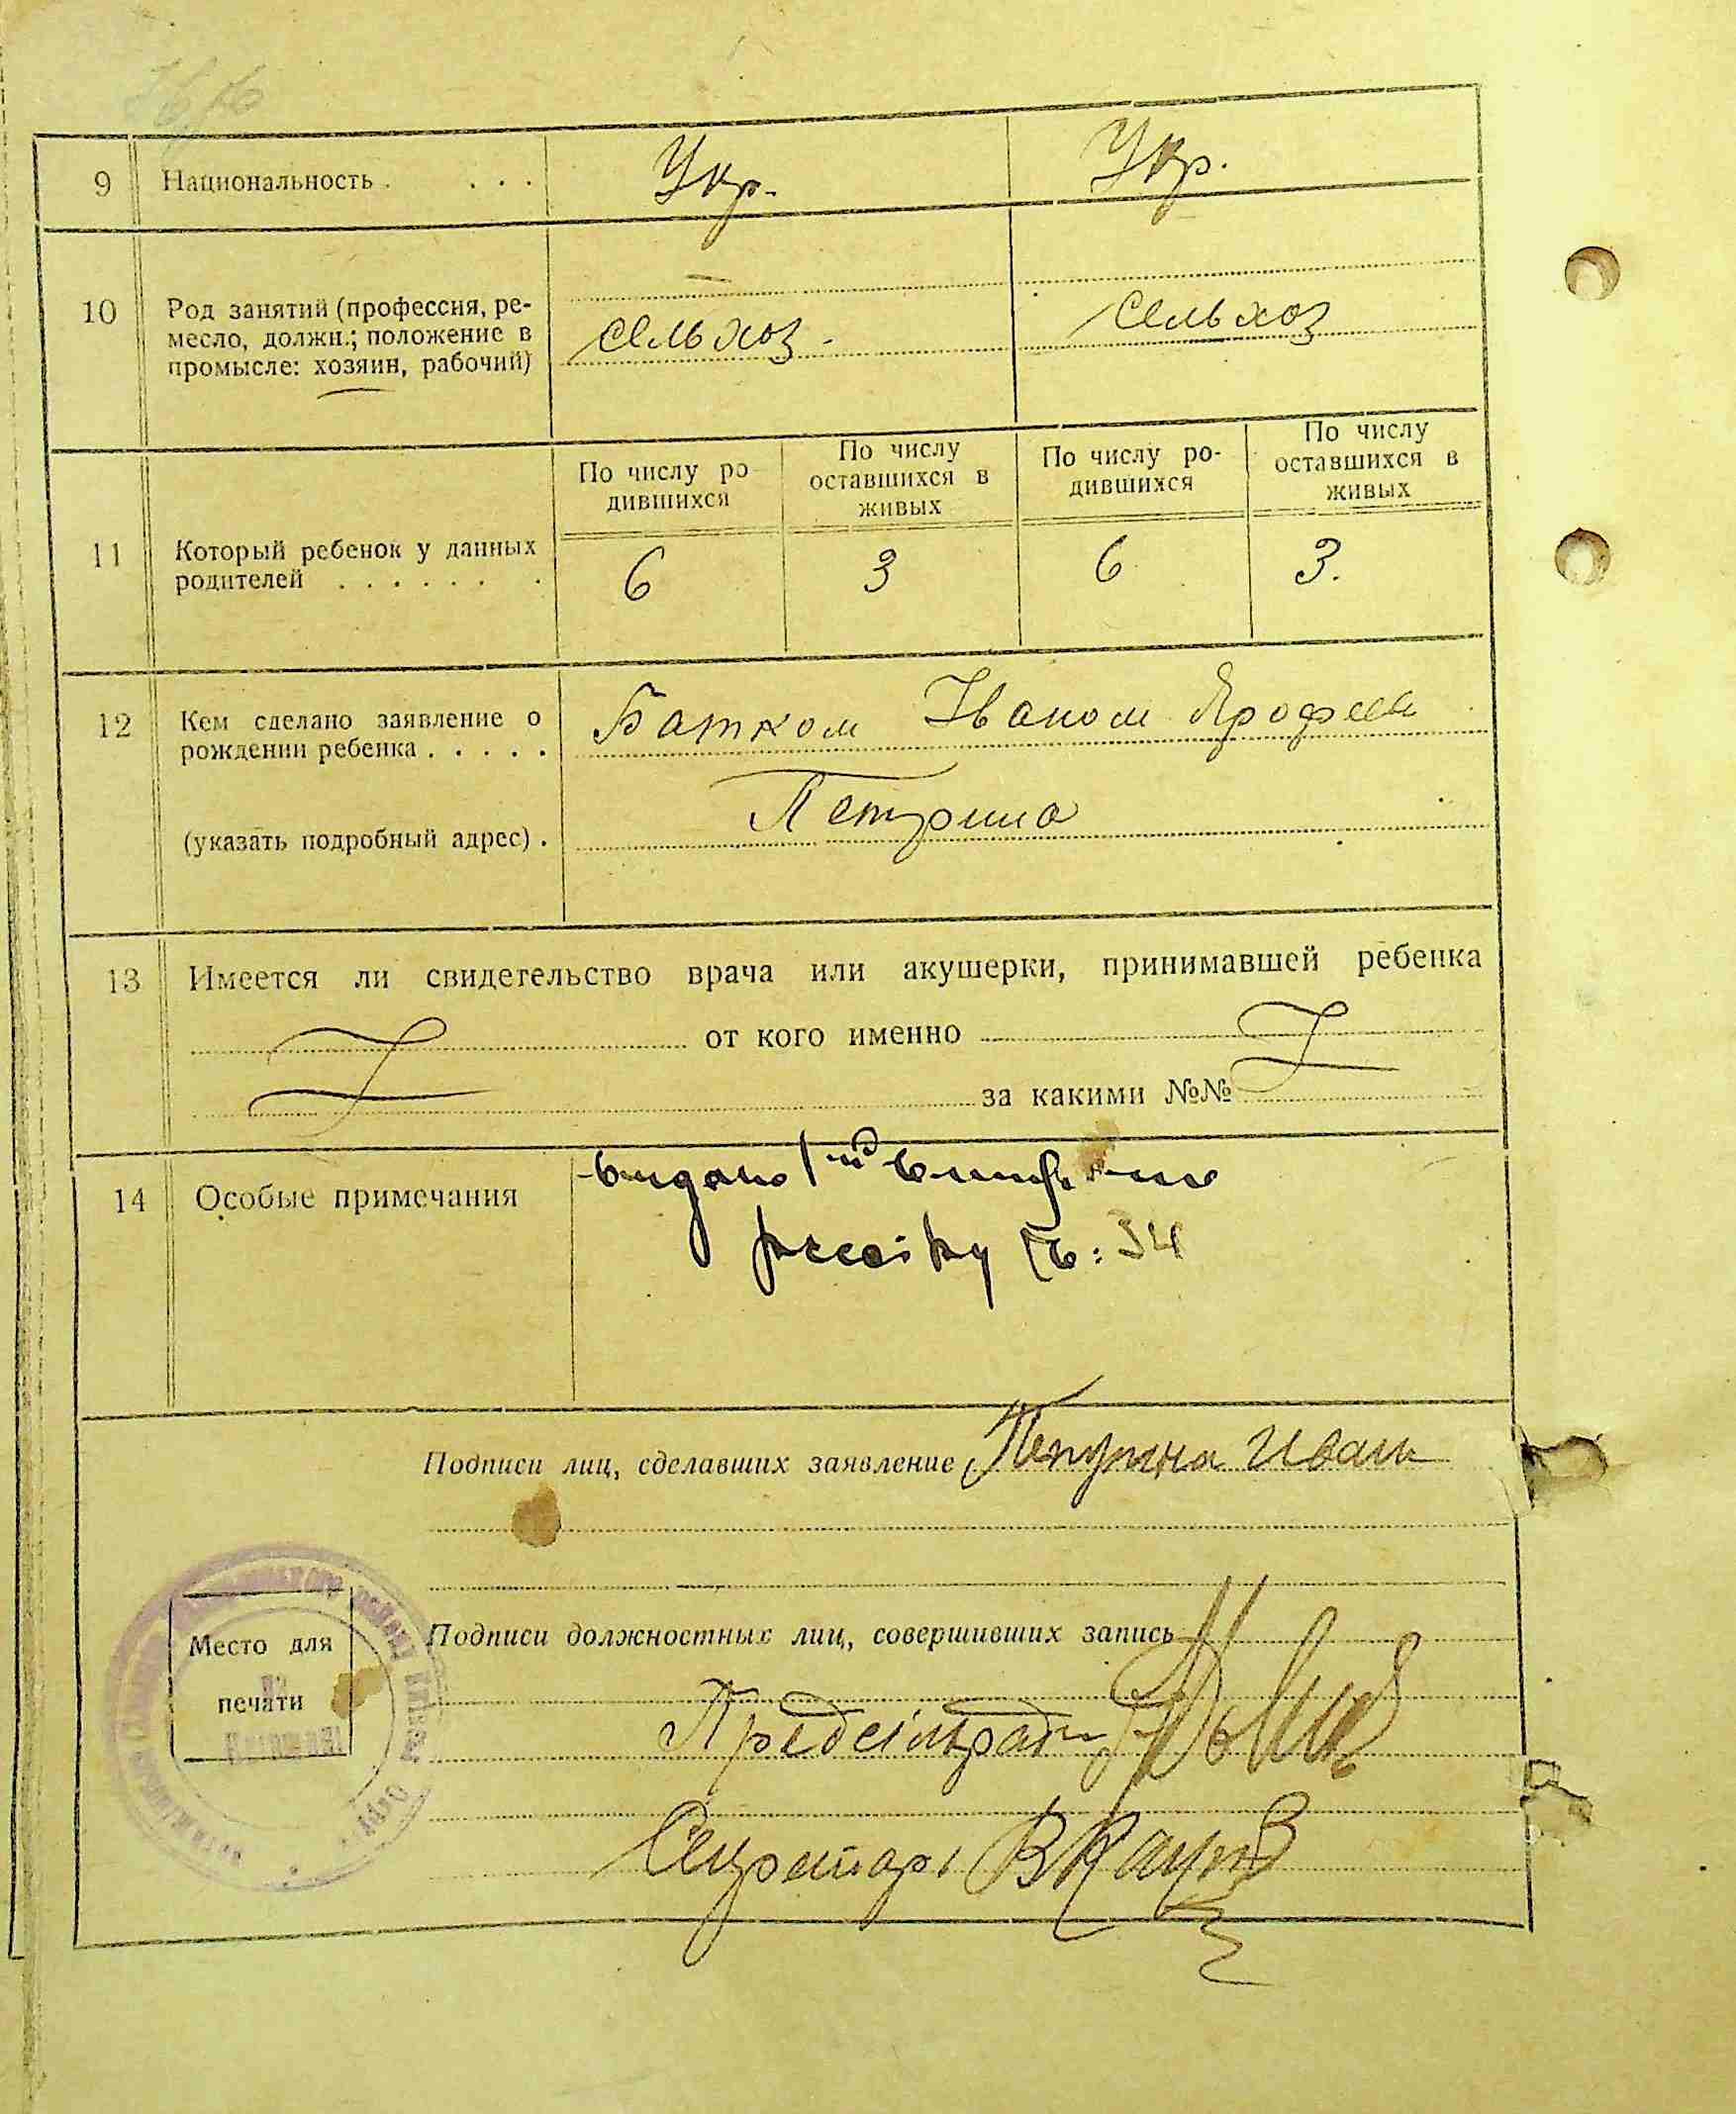 9 Национальность . . . . Укр. Укр.
10 Род занятий (профессия, ре-
месло, должн.; положение в
промысле: хозяин, рабочий)
сельхоз. сельхоз
По числу ро-
дившихся
По числу
оставшихся в
живых
По числу ро-
дившихся
По числу
оставшихся в
живых
11 Который ребенок у данных
родителей . . . . . . .
6 3 6 3.
12 Кем сделано заявление о
рождении ребенка . . . . .
Батком Іваном Ярофеев
(указать подробный адрес) .
Петрина
13 Имеется ли свидетельство врача или акушерки, принимавшей ребенка
от кого именно
за какими №№
14 Особые примечания
видано
34
Подписи лиц, сделавших заявление Петрина Иван
Подписи должностных лиц, совершивших запись
Место для
печати
Секретарь